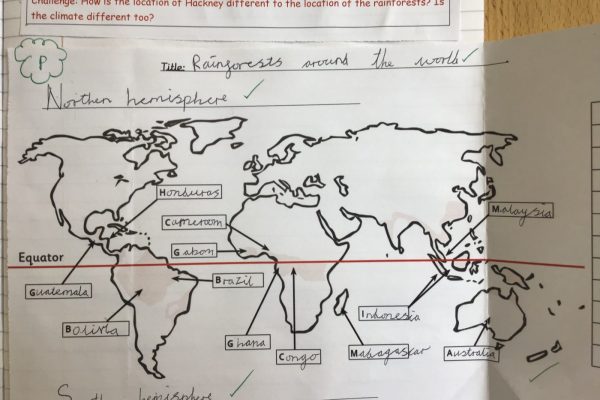 Challenge: How is the location of Hackney different to the location of the rainforests? Is
the climate different too?
P
Title: Rainforests around the world
Northen hemisphere
Honduras
Cameroom
Malaysia
Gabon
Equator
Guatemala
Brazil
Bolivia
Indonesia
Ghana
Congo
Madagascar
Australia
hemisphere